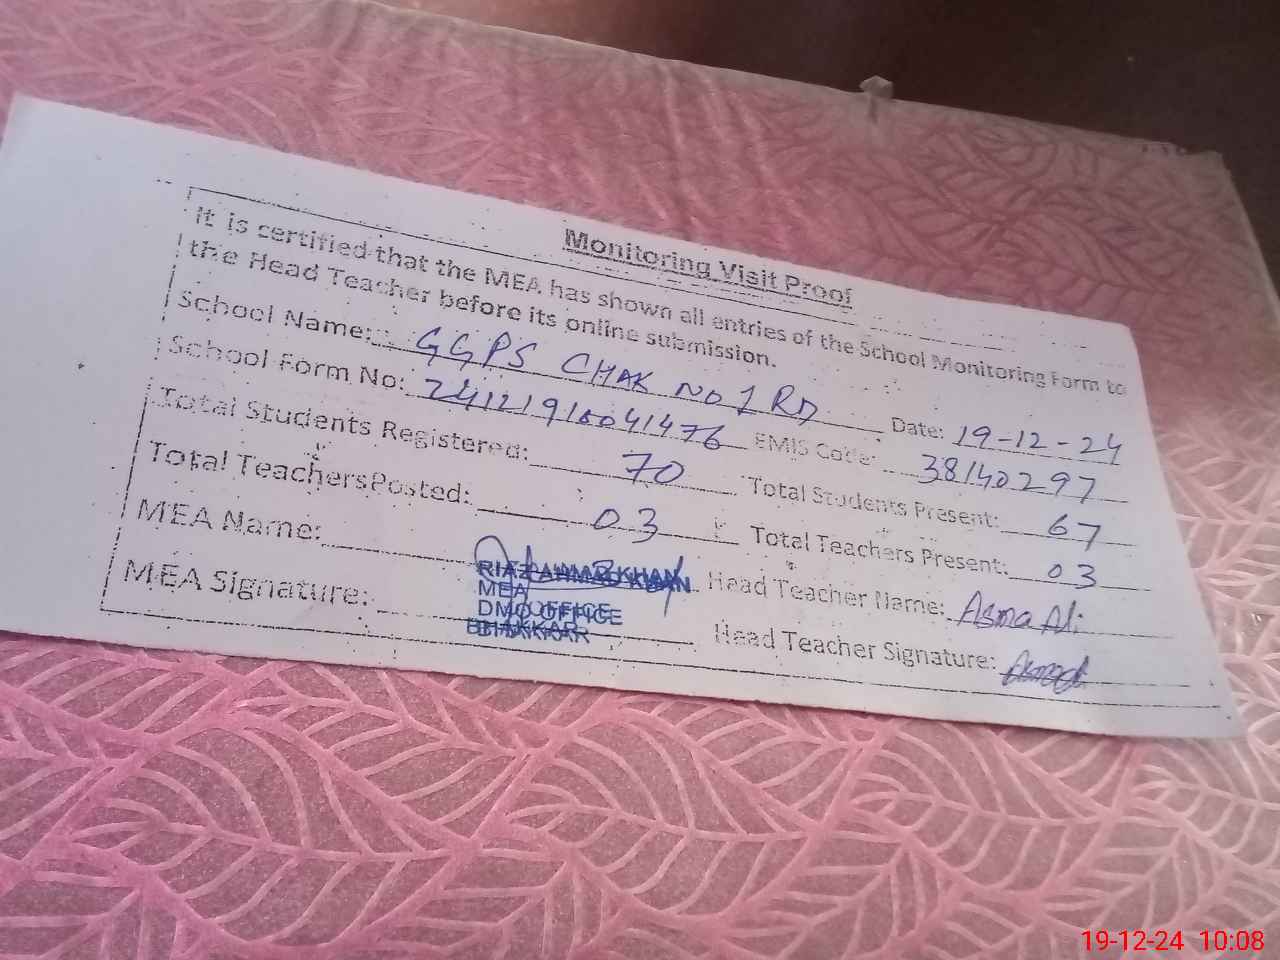 Monitoring Visit Proof
It is certified that the MEA has shown all entries of the School Monitoring Form to
the Head Teacher before its online submission.
School Name: GGPS CHAK NO 1 RD Date: 19-12-24
School Form No: EMIS Code: 38140297
Total Students Registered: 70 Total Students Present: 67
Total Teachers Posted: 03 Total Teachers Present: 03
MEA Name: RIAZ AHMAD KHAN Head Teacher Name: Asma Ali
MEA
DMO OFFICE
BHAKKAR
MEA Signature: Head Teacher Signature:
19-12-24 10:08